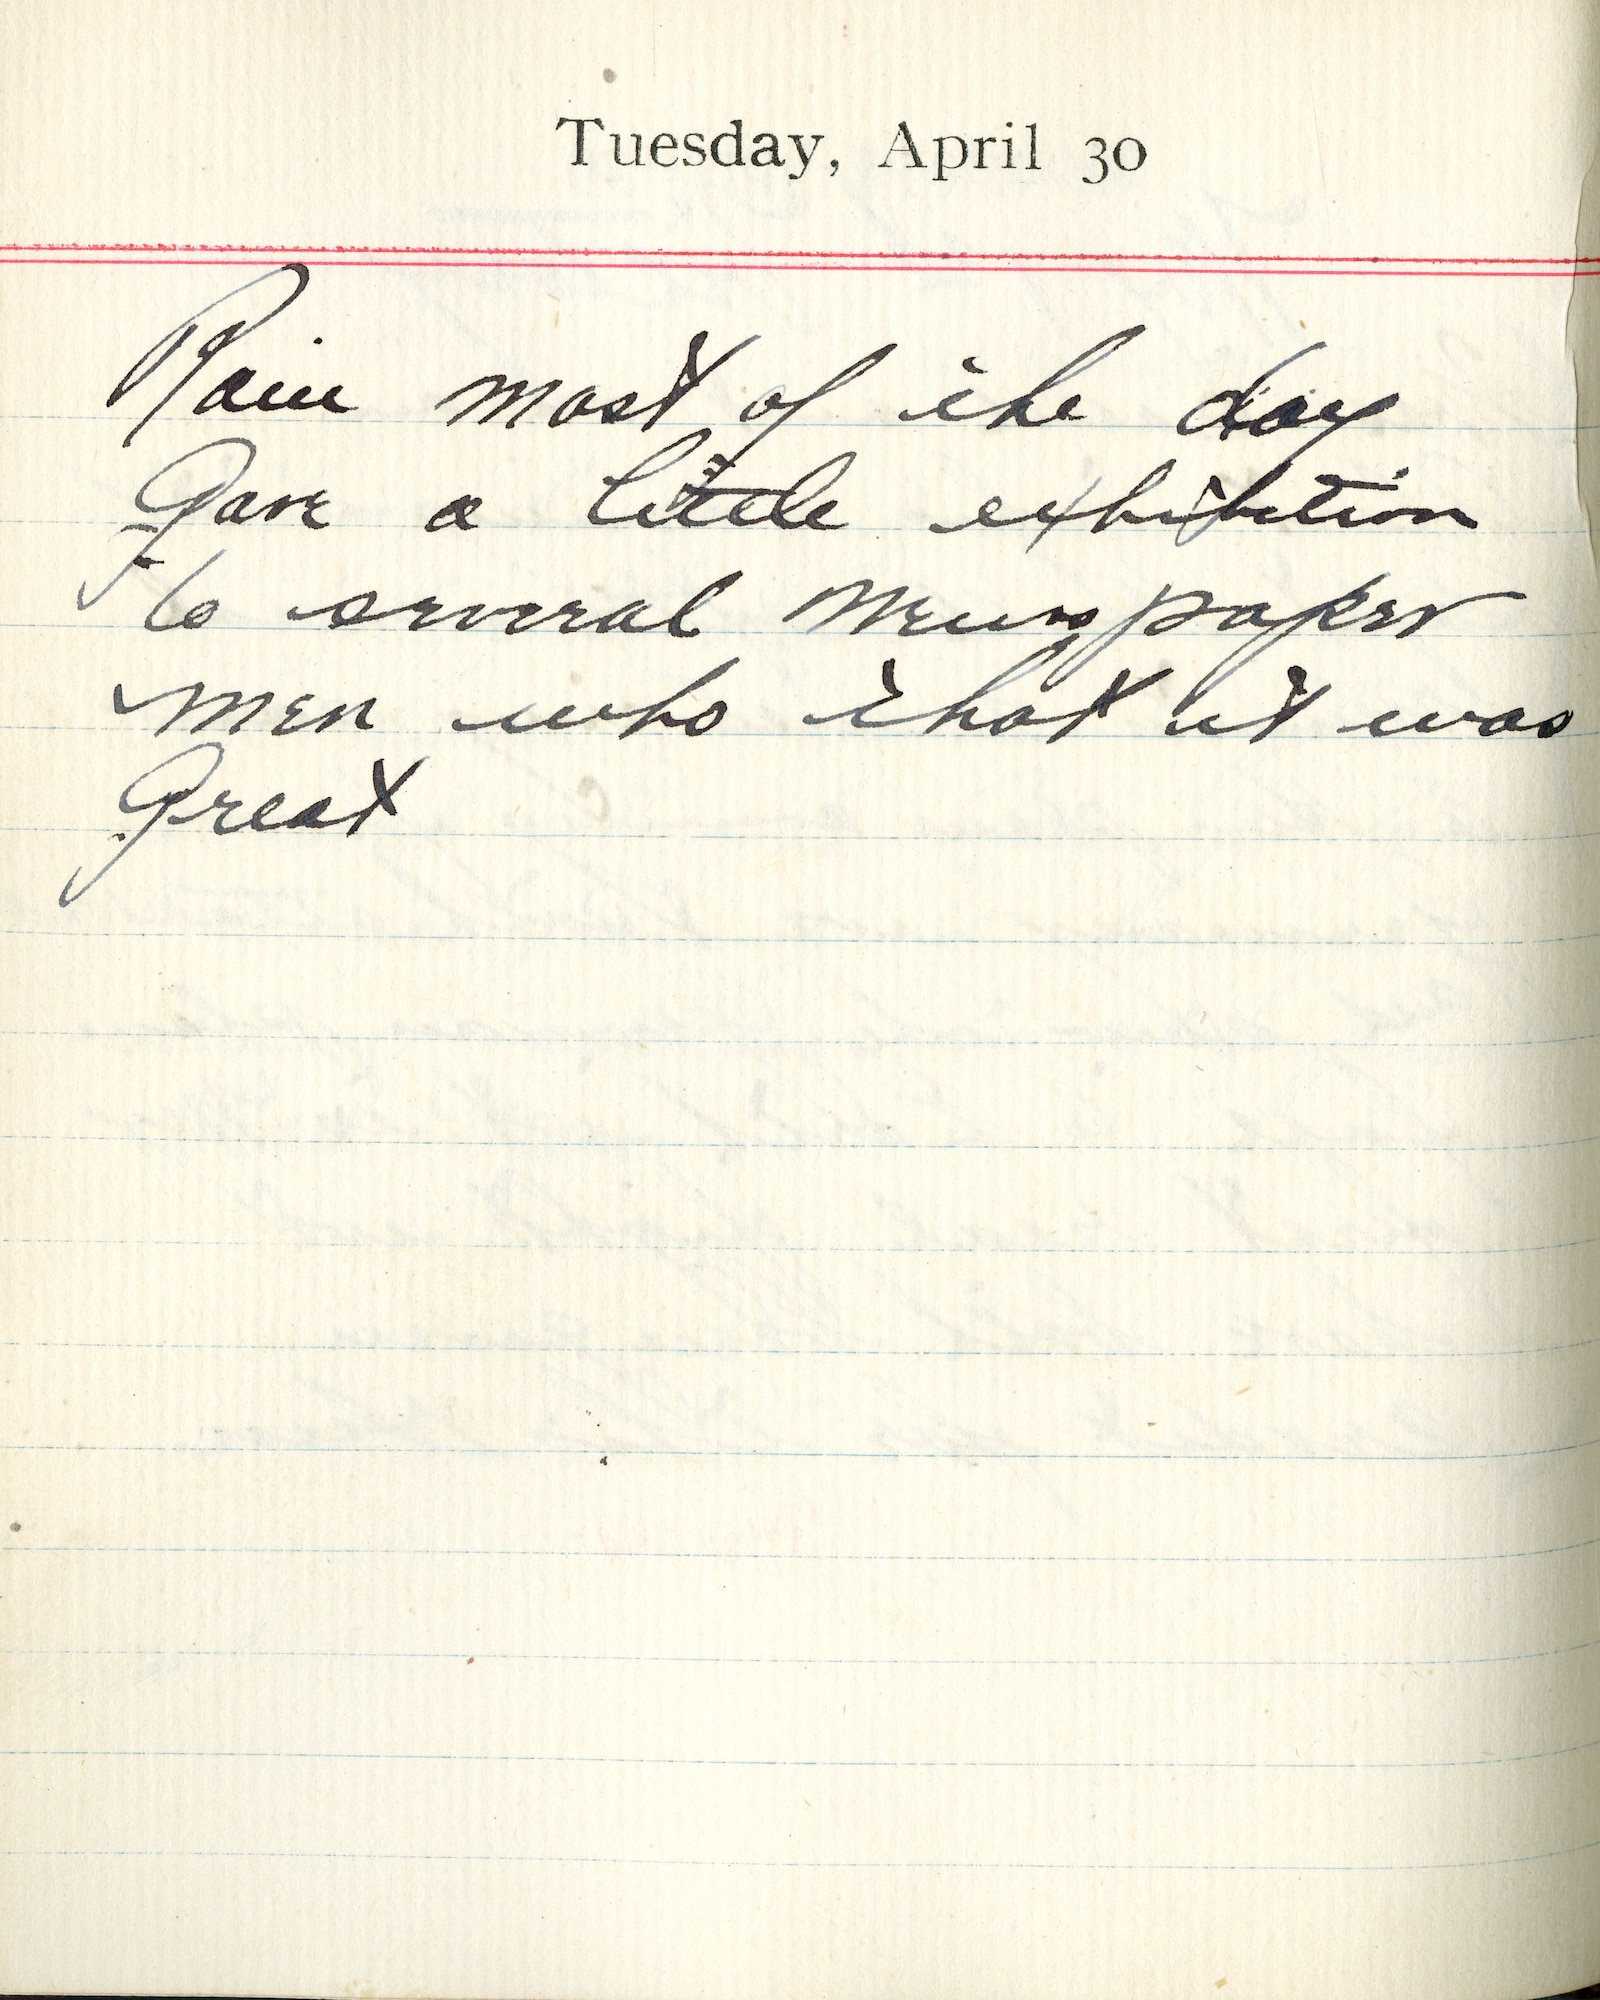 Tuesday, April 30
Rain most of the day
Gave a little exhibition
to several newspaper
men who that it was
Great